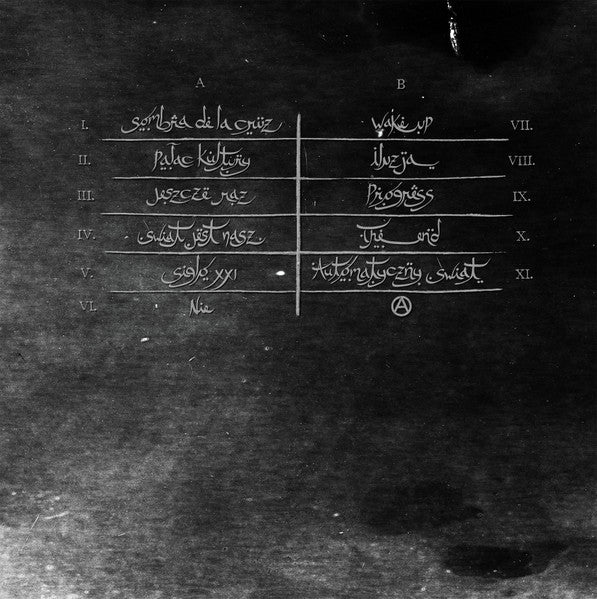 A B
I. Sombra de la cruz Wake up VII.
II. Pałac Kultury Iluzja VIII.
III. Jeszcze raz Progress IX.
IV. Świat jest nasz The end X.
V. Siglo XXI Automatyczny świat XI.
VI. Nie Ⓐ